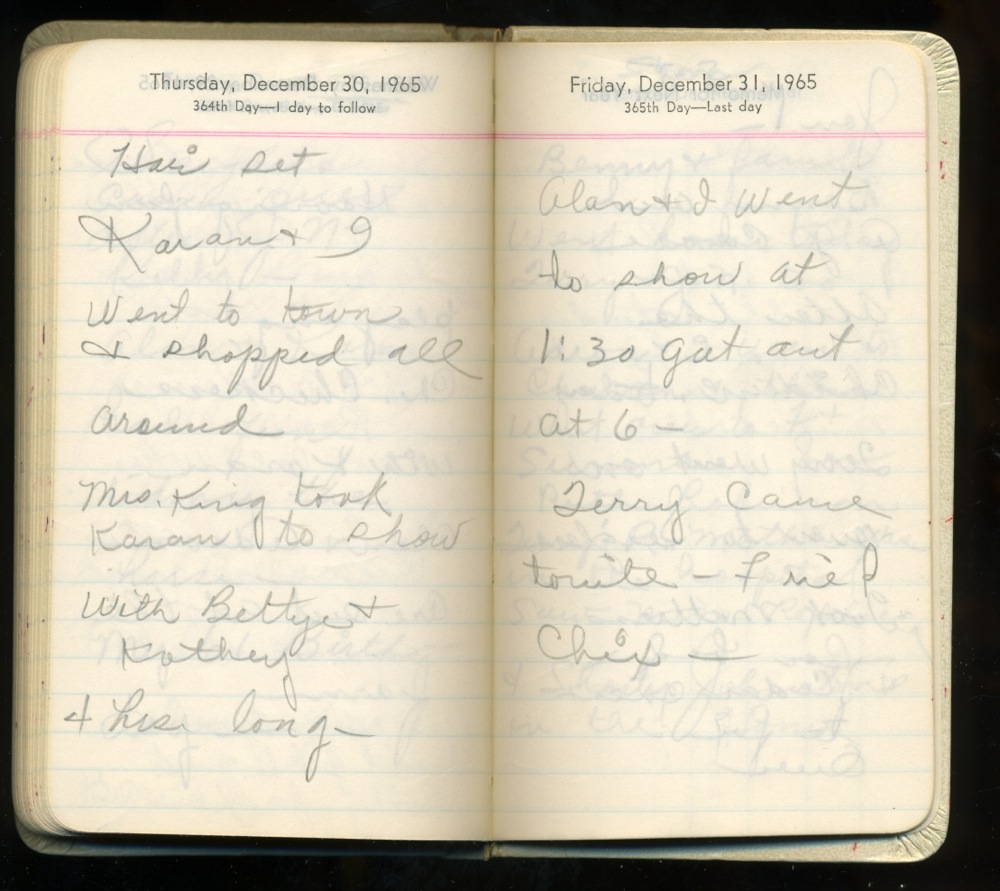 Thursday, December 30, 1965
364th Day—1 day to follow
Hair set
Karan + I
Went to town
& shopped all
around
Mrs. King took
Karan to show
With Bettye +
Kathey
4 hrs. long —
Friday, December 31, 1965
365th Day—Last day
Alan + I went
to show at
1:30 got out
at 6 —
Terry came
tonite — Fried
Chix —